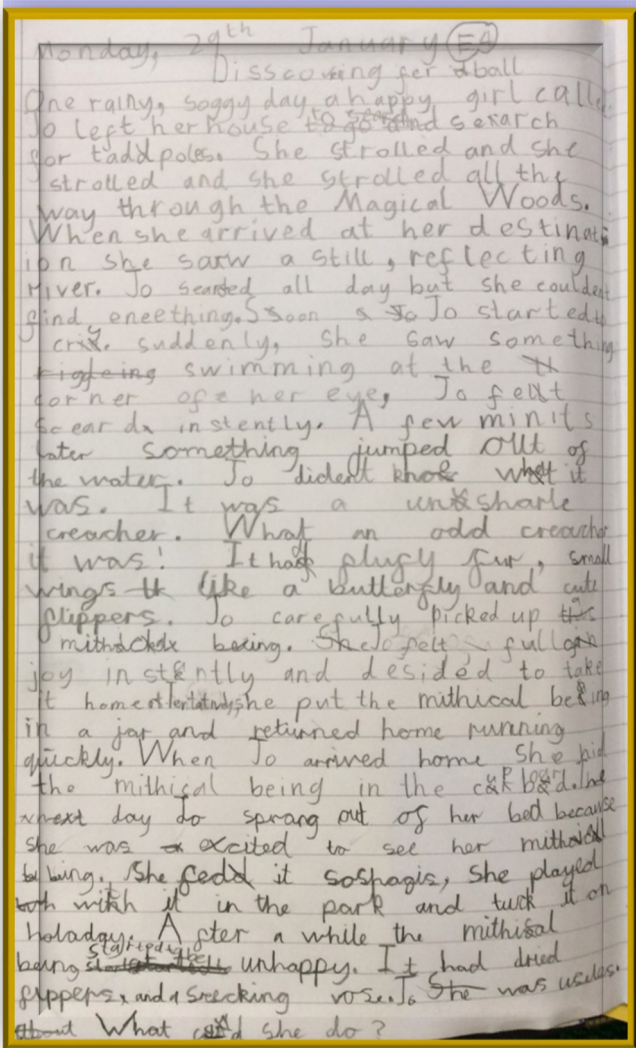 Monday, 29th January E9
Disscovering fer a ball
One rainy, soggy day a happy girl call
Jo left her house to go and search
for taddpoles. She strolled and she
strolled and she strolled all the
way through the Magical Woods.
When she arrived at her destinat
ion she sarw a still, reflecting
river. Jo searted all day but she couldent
find eneething. Ssoon Jo started to
criy. suddenly, she saw something
swimming at the
corner of her eye, Jo felt
sceard instently. A few minits
later something jumped out of
the water. Jo dident know what it
was. It was a
creacher. What an odd creacher
it was! It had plufy fur, small
wings like a butterfly and cute
flippers. Jo carefully picked up
being. Jo felt full of
joy instently and desided to take
it home she put the mithical being
in a jar and returned home running
quickly. When Jo arrived home She hid
the mithical being in the
next day Jo sprang out of her bed because
she was excited to see her mithical
being. She fedd it soshagis, She played
with it in the park and tuck it on
holaday. After a while the mithisal
being started to be unhappy. It had dried
flippers, and a
Jo was useles.
What could she do?